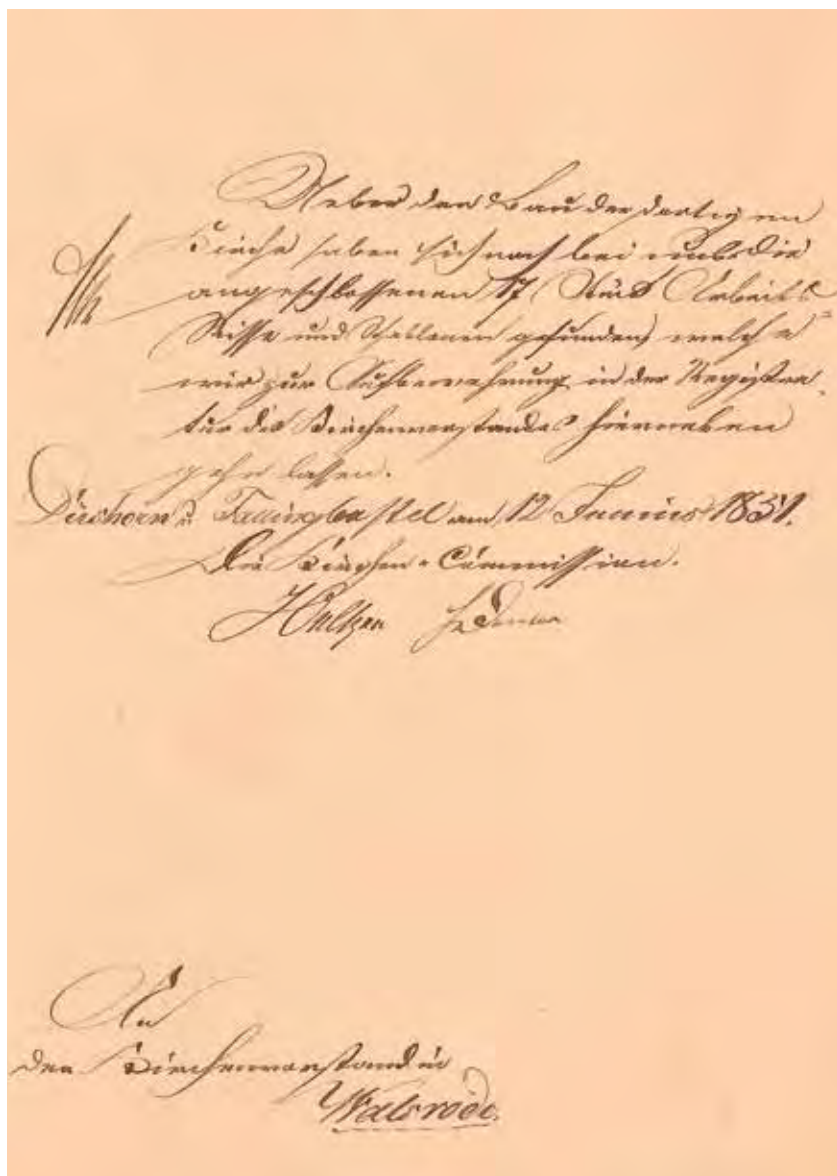 Ueber den Bau der dortigen
Kirche haben sich noch bei uns die
angeschlossenen 17 Stück Arbeits-
Risse und Schablonen gefunden, welche
wir zur Aufbewahrung in der Registra-
tur des Kirchenvorstandes hierneben
gehn lassen.
Düshorn u. Fallingbostel am 12 Junius 1851.
Die Kirchen-Commission.
An
den Kirchenvorstand in
Walsrode.